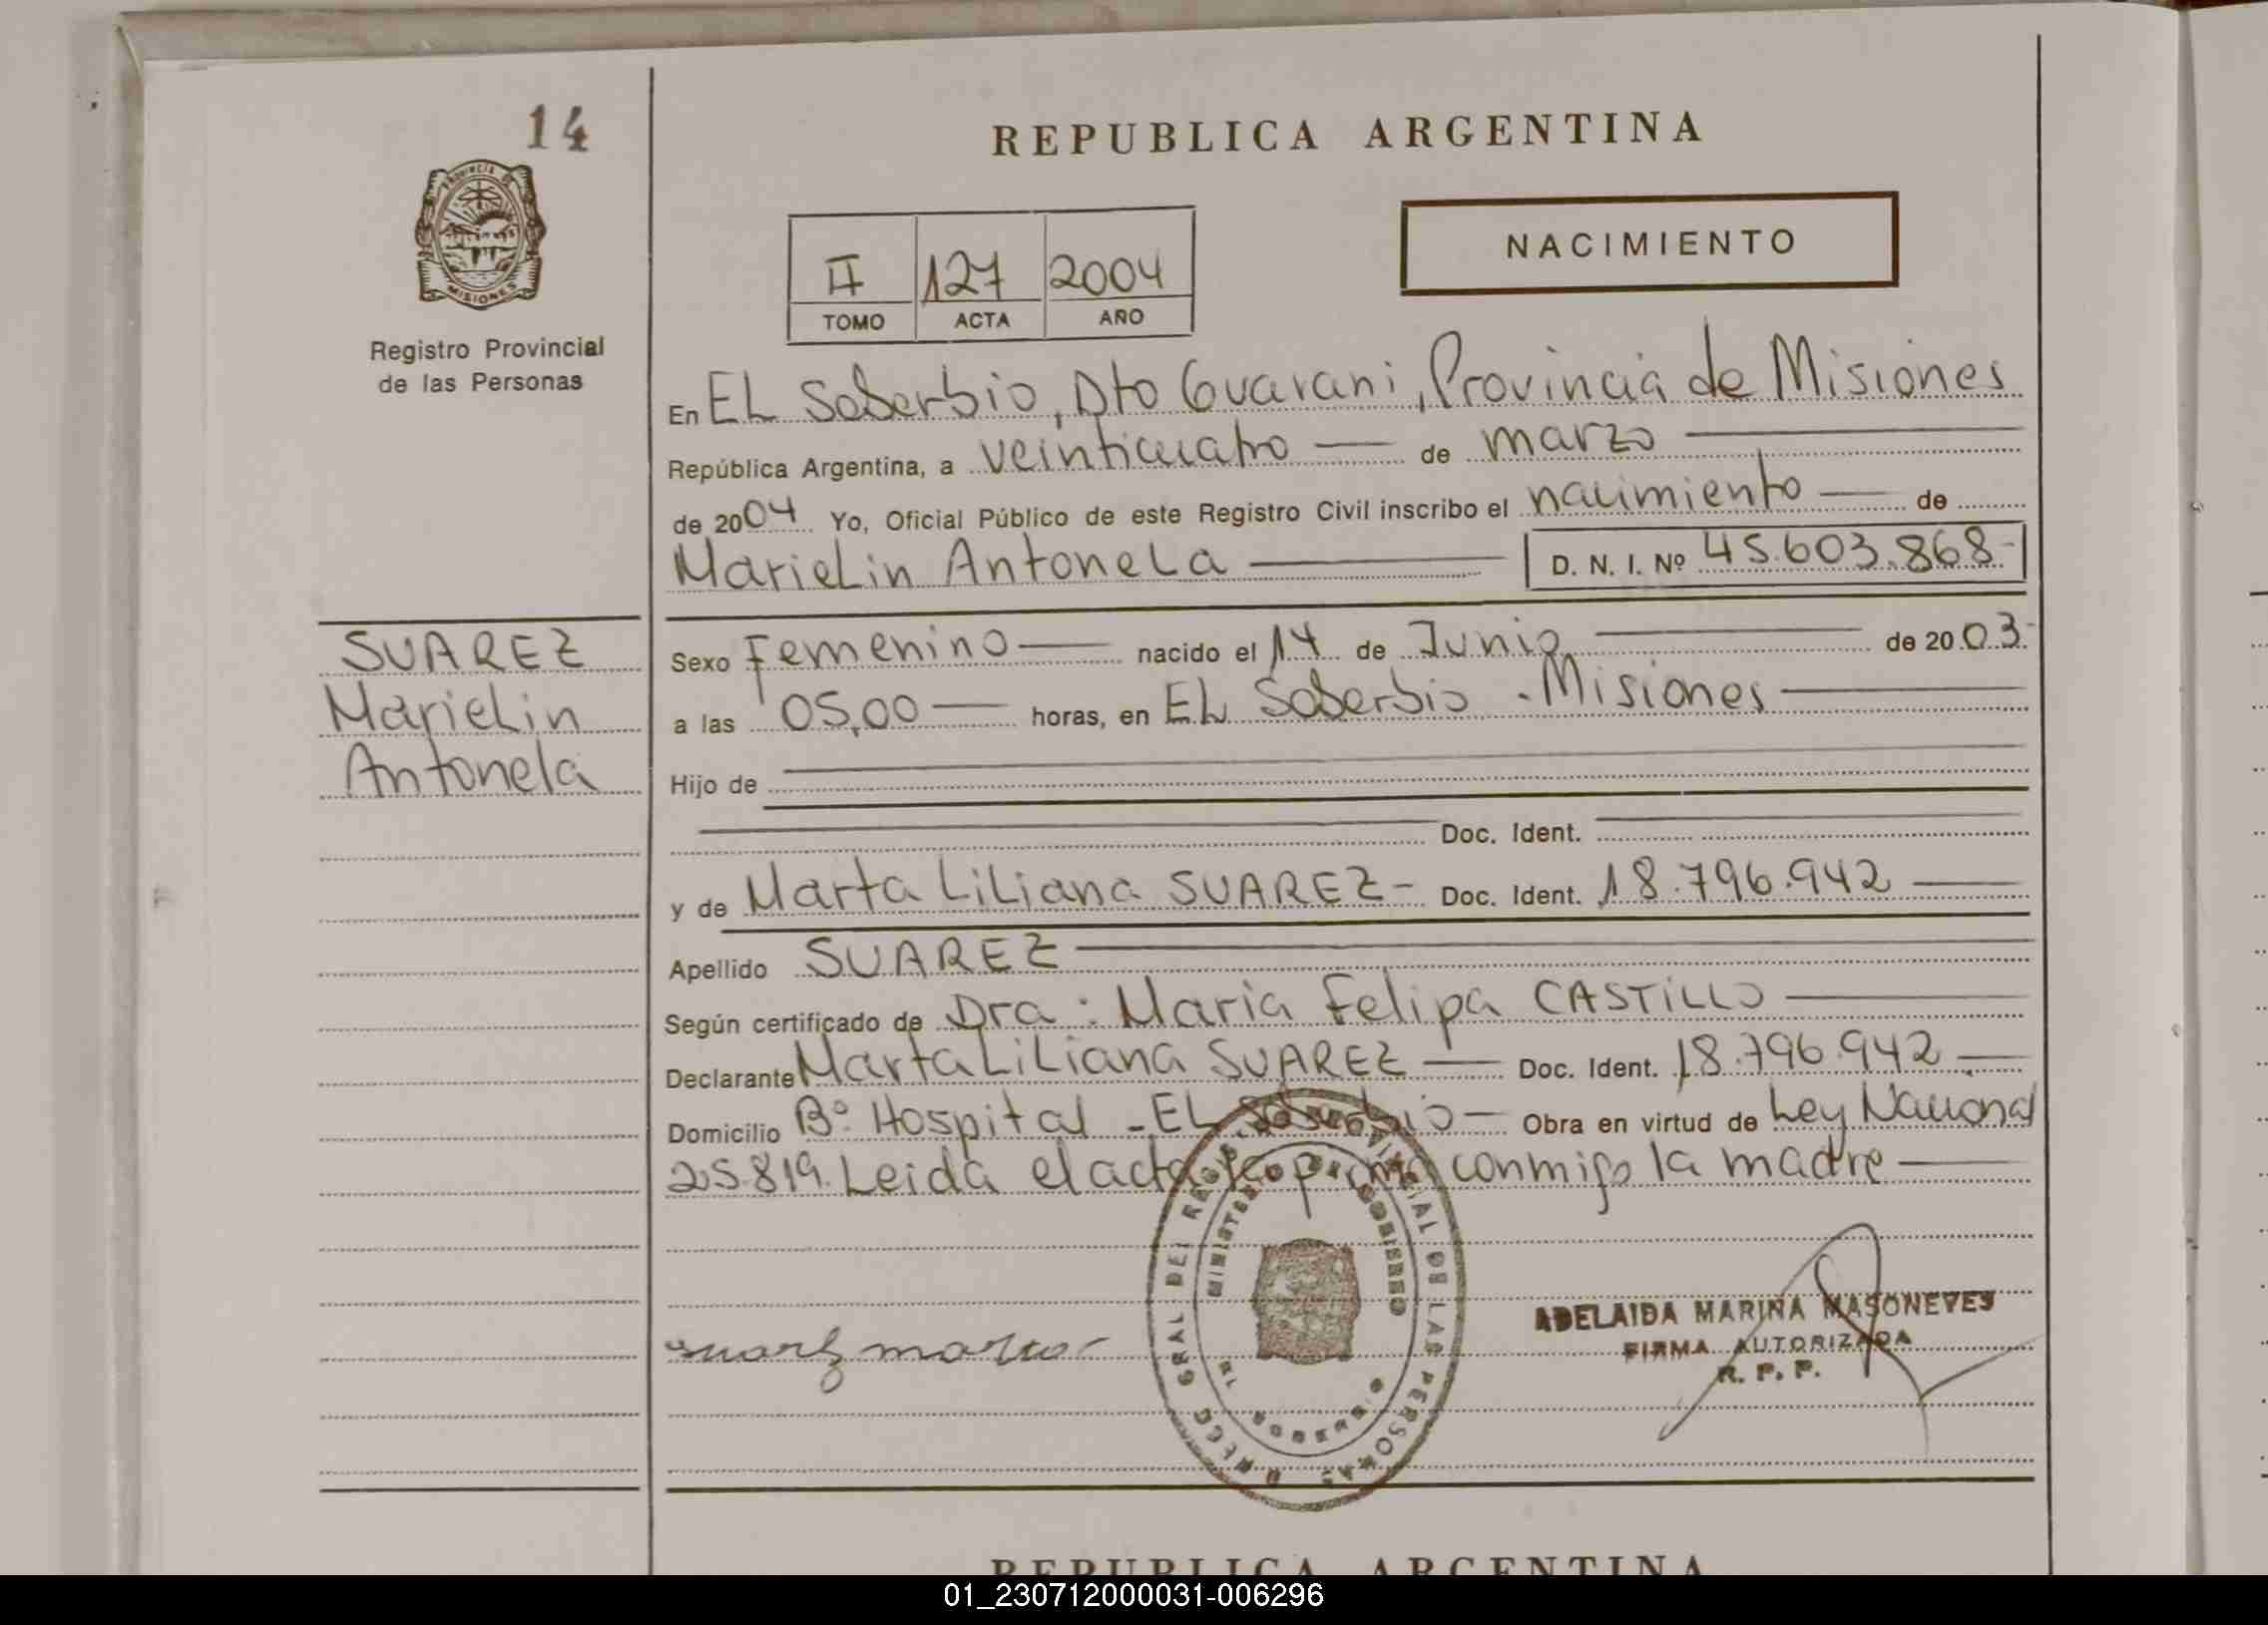 14
REPUBLICA ARGENTINA
PROVINCIA DE
MISIONES
Registro Provincial
de las Personas
NACIMIENTO
II 127 2004
TOMO ACTA AÑO
En EL Soberbio, Dto Guarani, Provincia de Misiones
República Argentina, a veinticuatro — de marzo —
de 2004 Yo, Oficial Público de este Registro Civil inscribo el nacimiento — de
Marielin Antonela — D. N. I. Nº 45.603.868-
SUAREZ
Marielin
Antonela
Sexo Femenino — nacido el 14 de Junio — de 2003-
a las 05,00 — horas, en EL Soberbio - Misiones —
Hijo de —
— Doc. Ident. —
y de Marta Liliana SUAREZ - Doc. Ident. 18.796.942 —
Apellido SUAREZ —
Según certificado de Dra: Maria Felipa CASTILLO —
Declarante Marta Liliana SUAREZ — Doc. Ident. 18.796.942 —
Domicilio Bº Hospital - EL Soberbio — Obra en virtud de Ley Nacional
25.819. Leida el acta la firma conmigo la madre —
suarez marta
ADELAIDA MARINA MASONEVES
FIRMA AUTORIZADA
R. P. P.
MINISTERIO DE GOBIERNO
EL SOBERBIO
REPUBLICA ARGENTINA
01_230712000031-006296